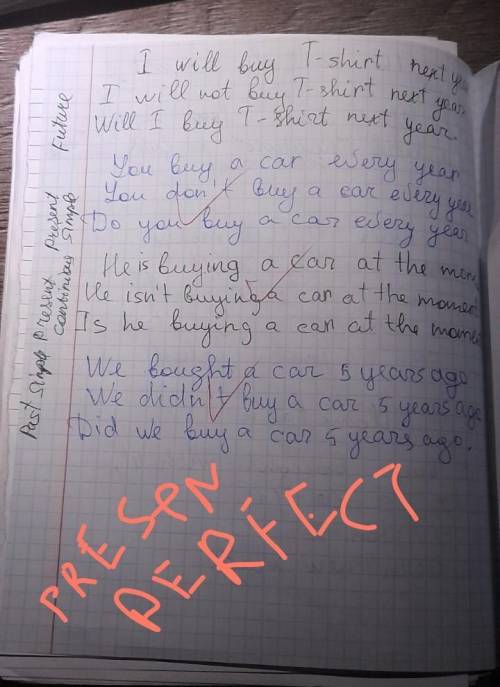 I will buy T-shirt next year
I will not buy T-shirt next year.
Will I buy T-shirt next year.
Future
You buy a car every year
You don't buy a car every year
Do you buy a car every year
Present Simple
He is buying a car at the mom
He isn't buying a car at the moment
Is he buying a car at the mome
Present Continuous
We bought a car 5 years ago
We didn't buy a car 5 years ago
Did we buy a car 5 years ago.
Past Simple
PRESEN
PERFECT